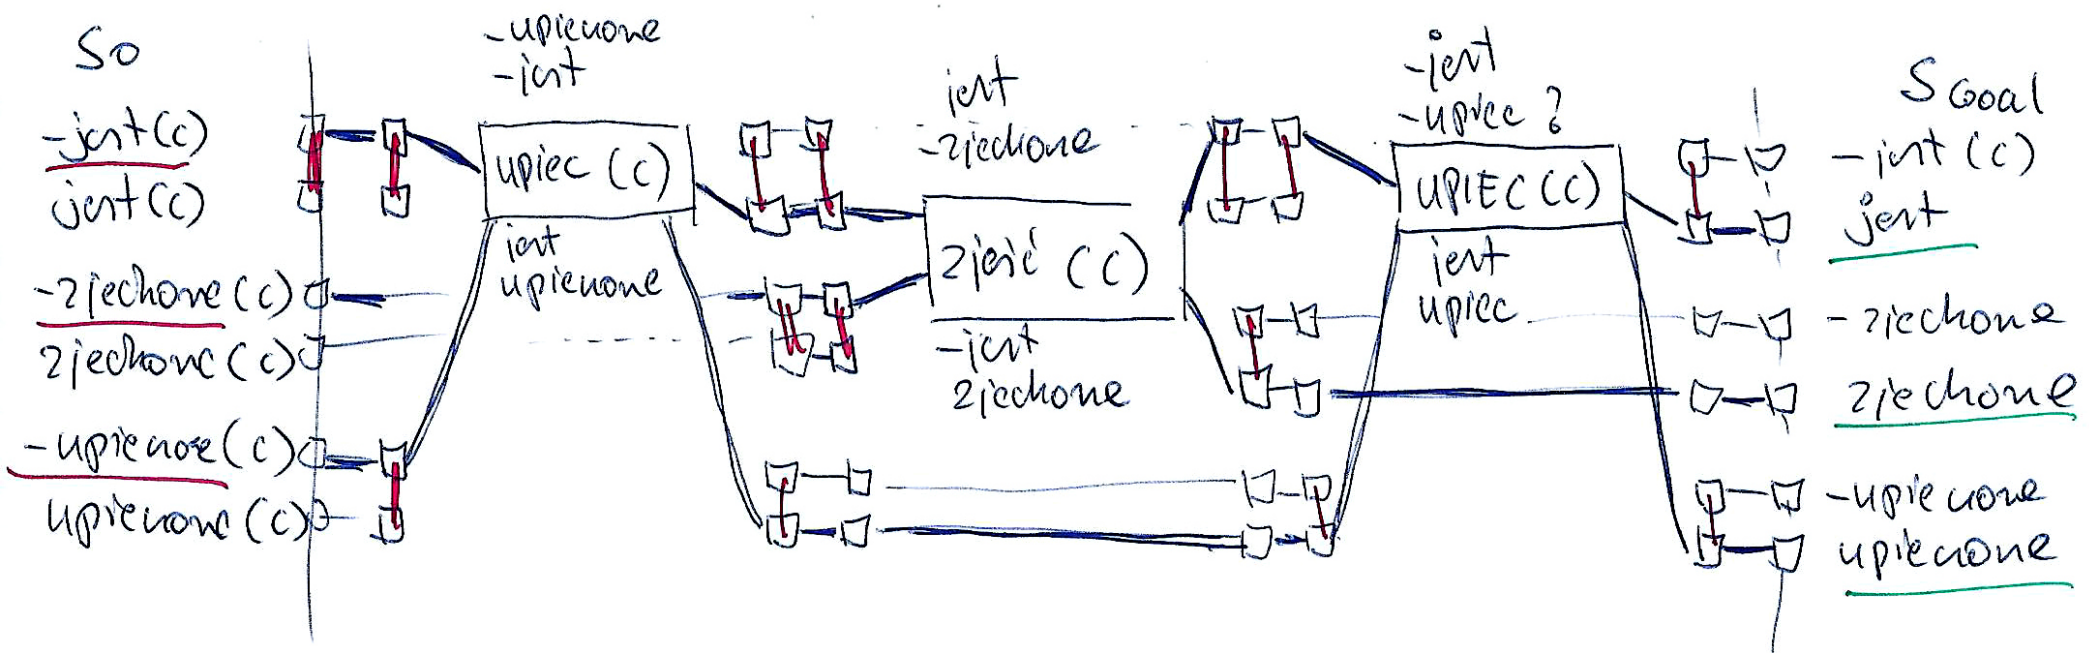 S0
-jest(c)
jest(c)
-zjechone(c)
zjechone(c)
-upieuoe(c)
upieuone(c)
-upieuone
-jest
upiec (c)
jest
upieuone
jest
-zjechone
zjeść (c)
-jest
zjechone
-jest
-upiec ?
UPIEC(c)
jest
upiec
SGoal
-jest(c)
jest
-zjechone
zjechone
-upieuone
upieuone